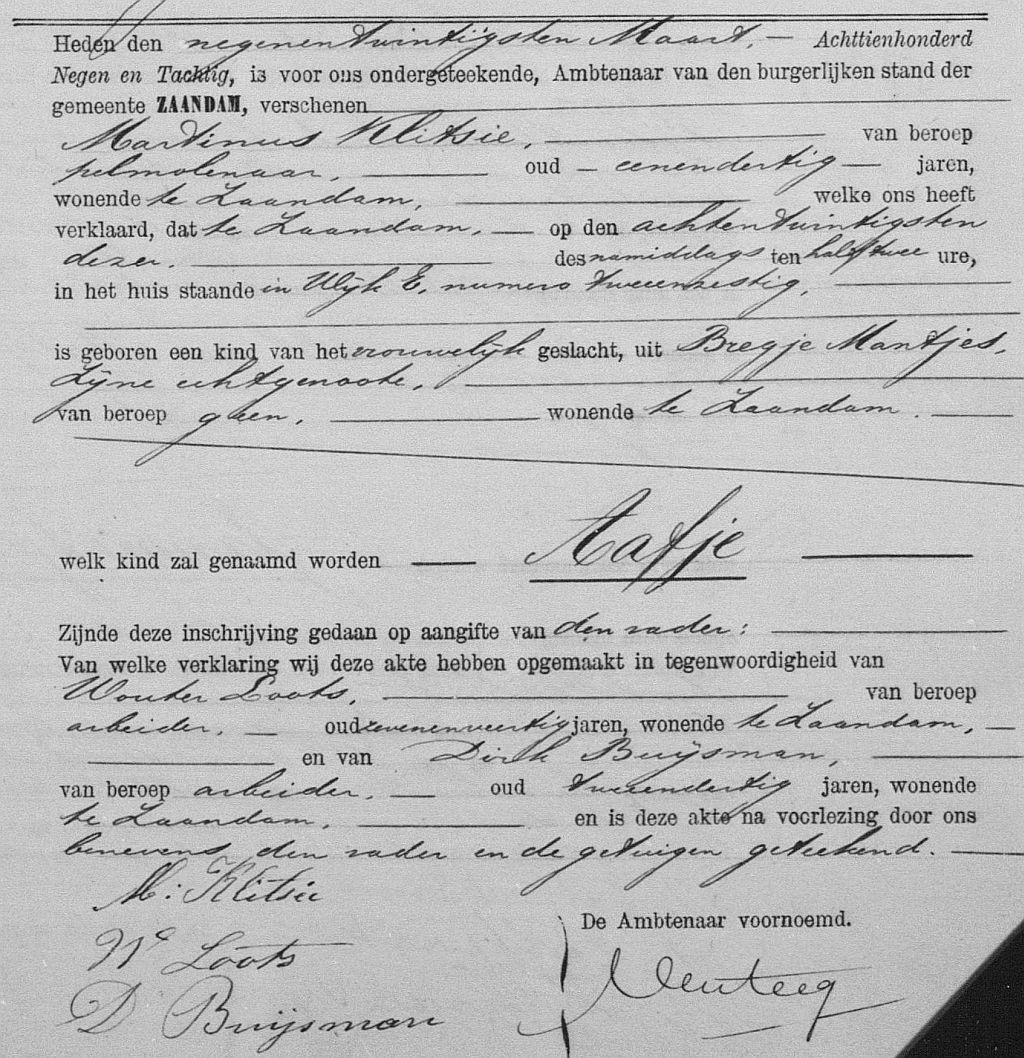 Heden den negenentwintigsten Maart, — Achttienhonderd
Negen en Tachtig, is voor ons ondergeteekende, Ambtenaar van den burgerlijken stand der
gemeente ZAANDAM, verschenen
Martinus Klitsie, van beroep
pelmolenaar, oud — eenendertig — jaren,
wonende te Zaandam, welke ons heeft
verklaard, dat te Zaandam, — op den achtentwintigsten
dezer, des namiddags ten half twee ure,
in het huis staande in Wijk E, numero tweeenzestig,
is geboren een kind van het vrouwelijk geslacht, uit Bregje Mantjes,
Zijne echtgenoote,
van beroep geen, wonende te Zaandam.
welk kind zal genaamd worden — Aafje
Zijnde deze inschrijving gedaan op aangifte van den vader:
Van welke verklaring wij deze akte hebben opgemaakt in tegenwoordigheid van
Wouter Loots, van beroep
arbeider, — oud zevenenveertig jaren, wonende te Zaandam, —
en van Dirk Buijsman,
van beroep arbeider, — oud tweeendertig jaren, wonende
te Zaandam, en is deze akte na voorlezing door ons
benevens den vader en de getuigen geteekend. —
M: Klitsie
De Ambtenaar voornoemd.
W Loots
D Buijsman